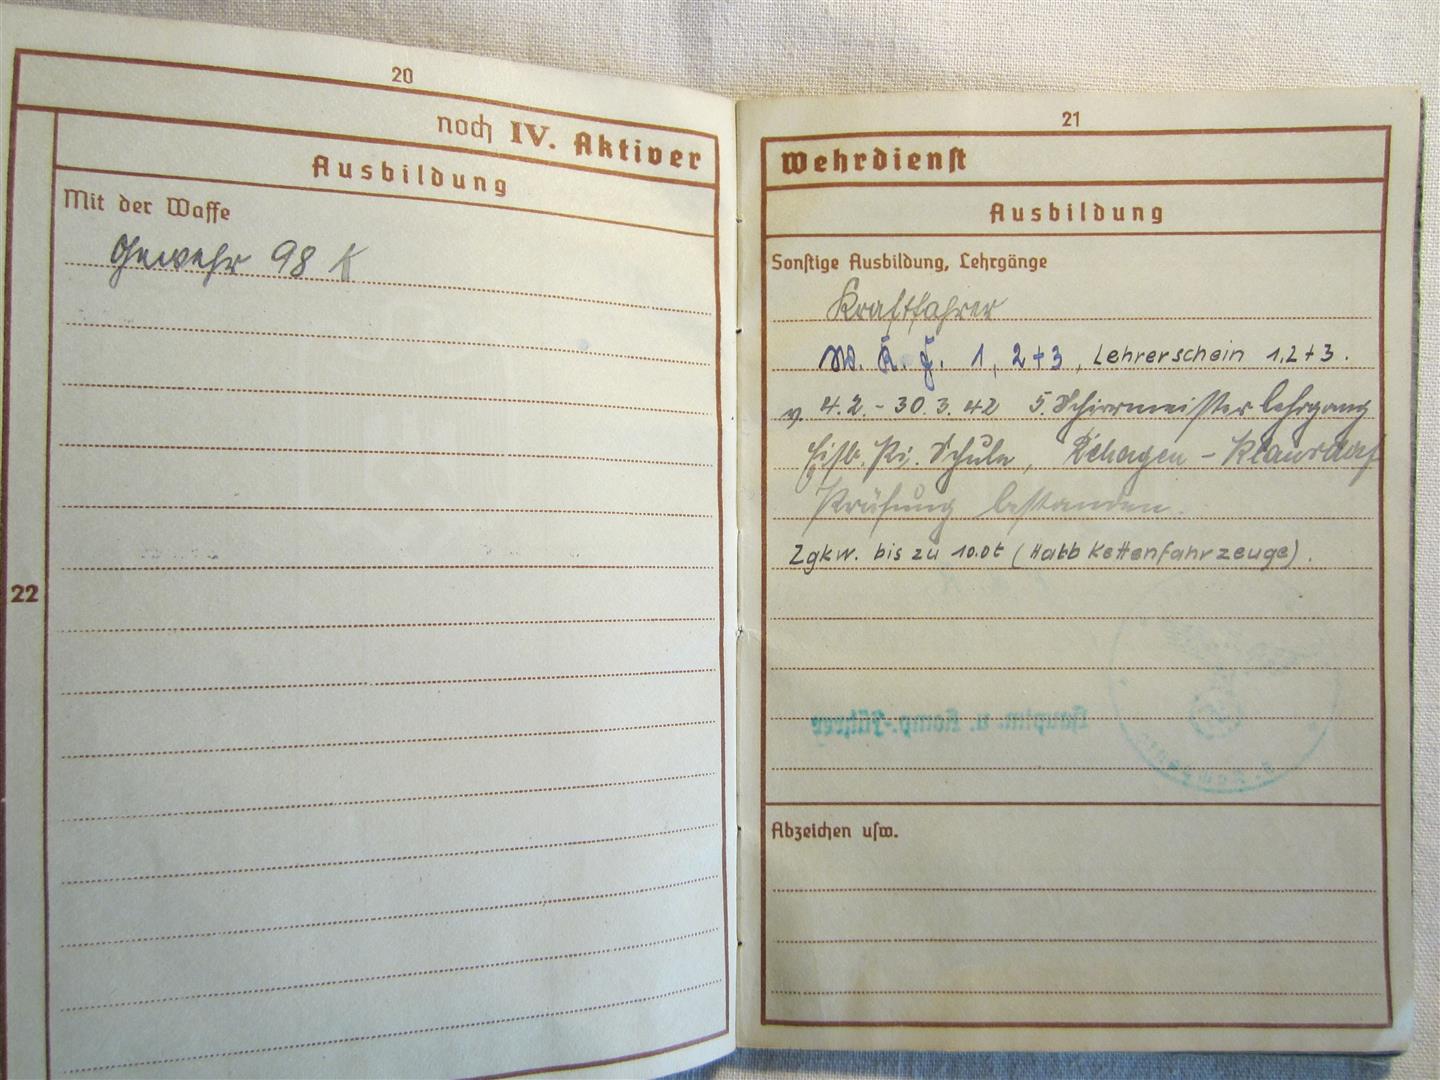 20
noch IV. Aktiver
Ausbildung
Mit der Waffe
Gewehr 98 K
22
21
Wehrdienst
Ausbildung
Sonstige Ausbildung, Lehrgänge
Kraftfahrer
W. K. F. 1, 2+3, Lehrerschein 1,2+3.
v. 4.2. - 30.3.42 5. Schirrmeisterlehrgang
Eisb. Pi. Schule, Rehagen - Klausdorf
Prüfung bestanden.
Zgkw. bis zu 10.0t (Halbkettenfahrzeuge).
Hauptm. u. Komp.-Führer
Abzeichen usw.